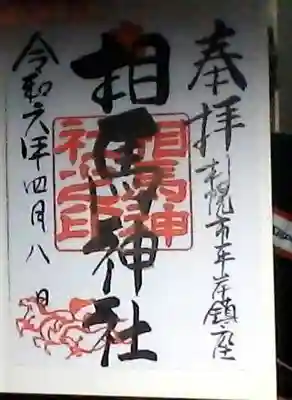 奉拝
札幌市平岸鎮座
相馬神社
相馬神
社之印
令和六年四月八日